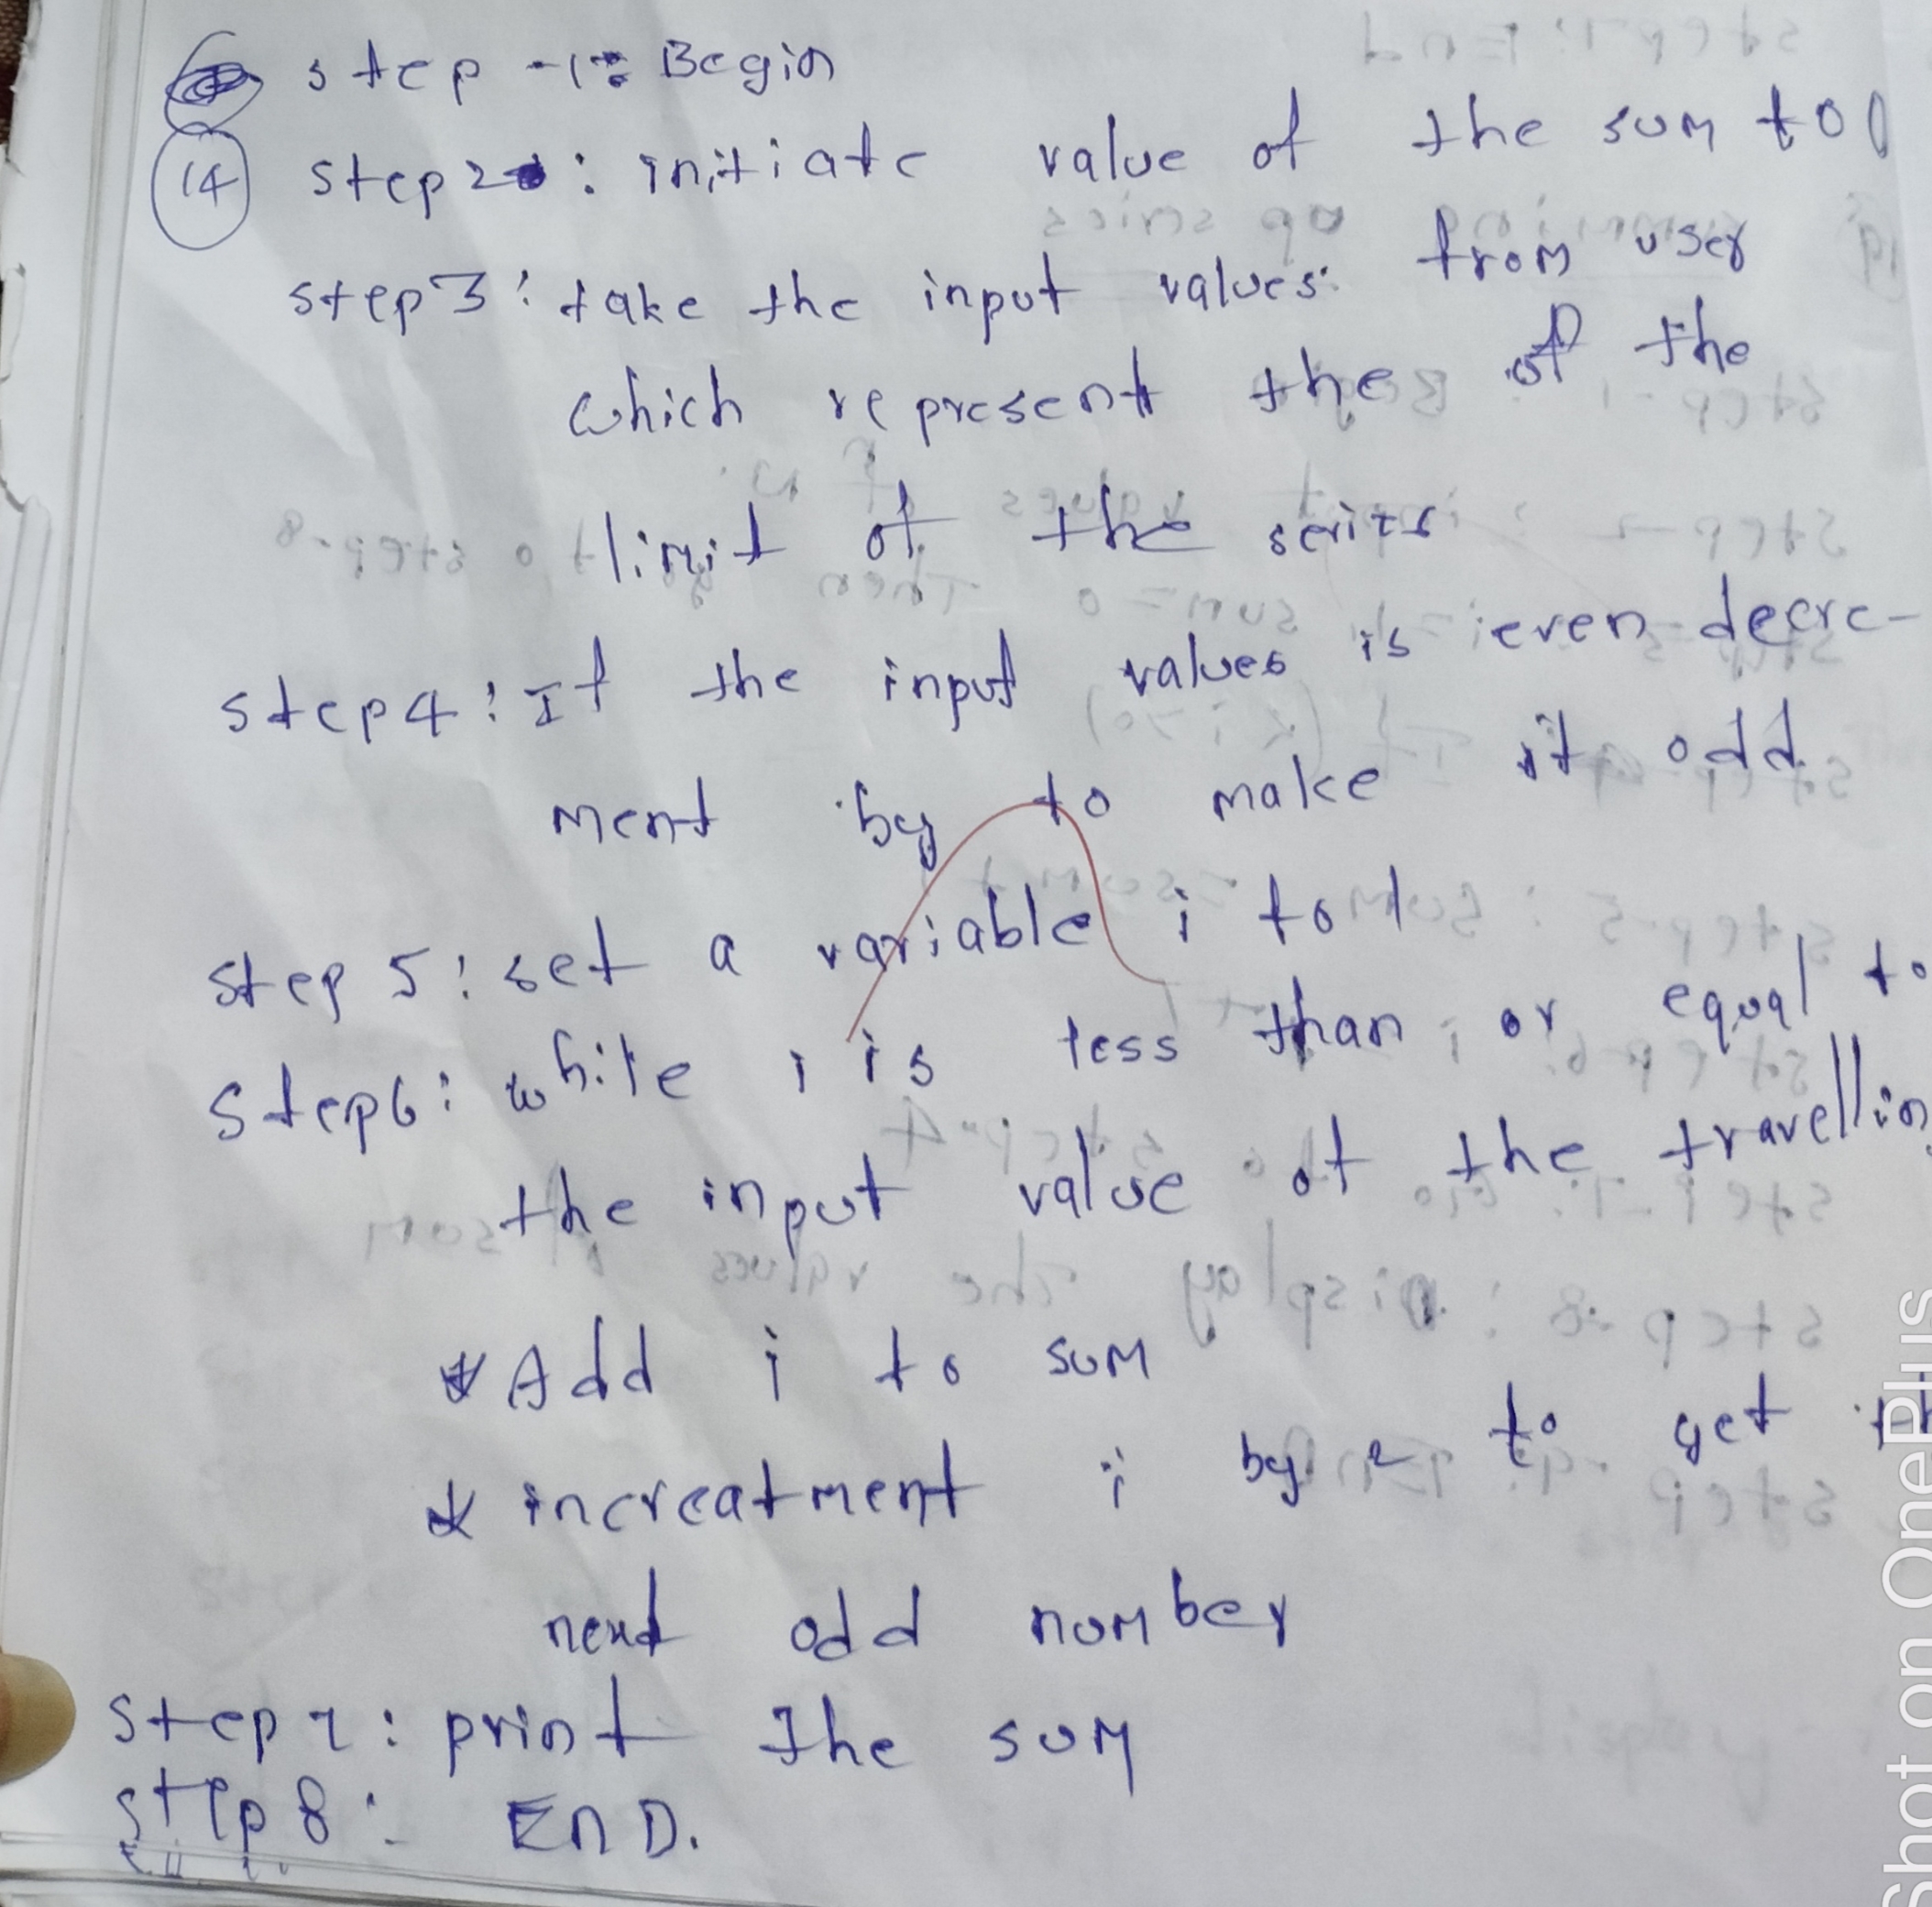 step -1: Begin
(14) step2 : initiate value of the sum to 0
step3: take the input values from user
which represent the of the
limit of the series
step4: If the input values is even decre-
ment by to make it odd
step 5: set a variable i to 1
step6: while i is less than or equal to
the input value of the travellin
* Add i to sum
* increatment i by 2 to get th
next odd number
step 7: print the sum
step 8: END.
Shot on OnePlus